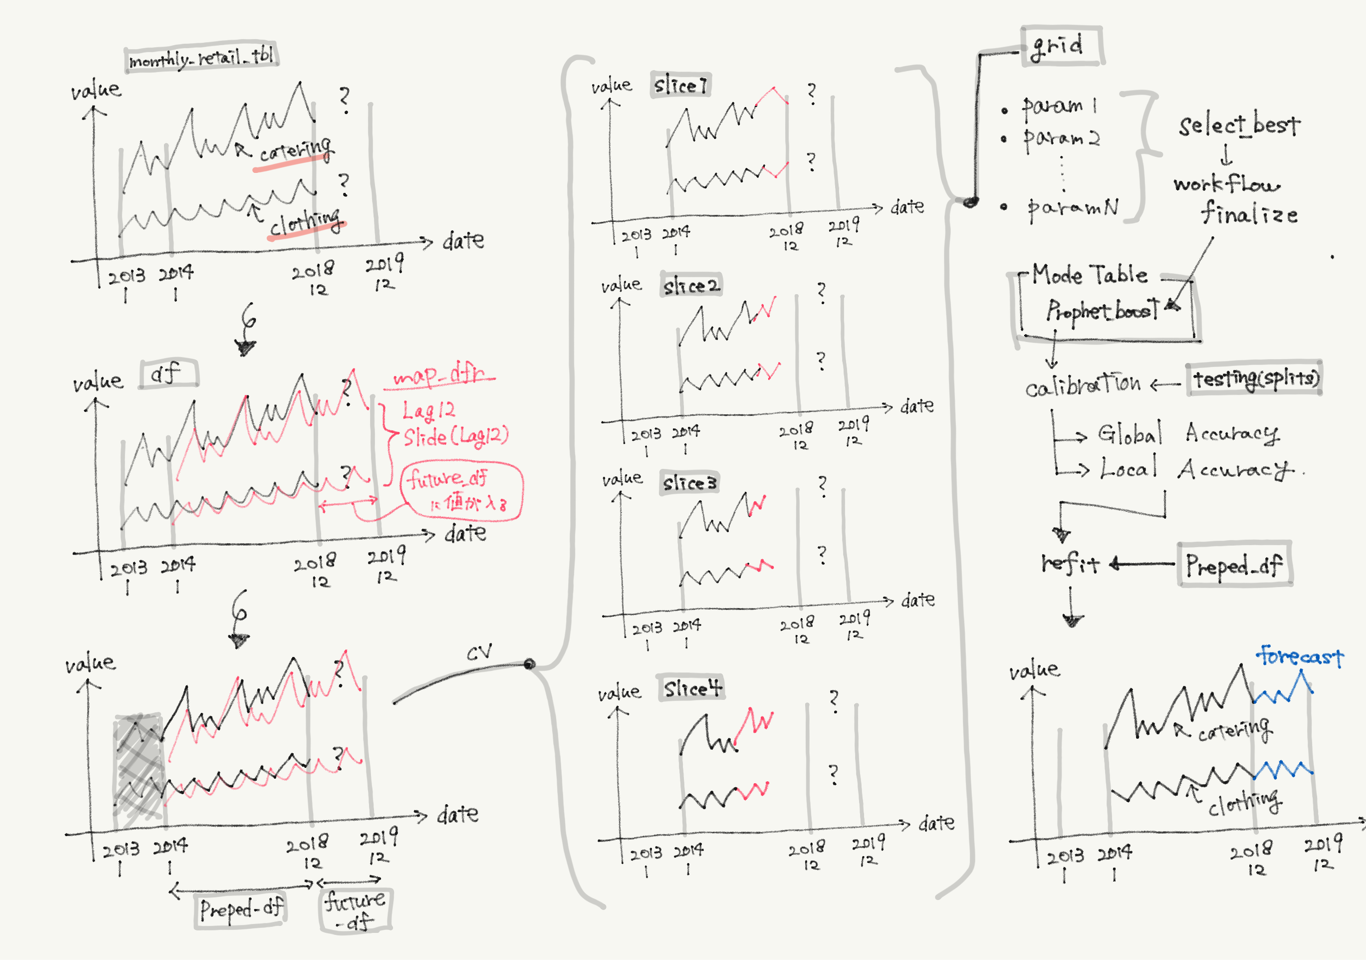 monthly_retail_tbl
value
?
catering
?
clothing
date
2013
1
2014
1
2018
12
2019
12
6
value
df
?
map_dfr
Lag12
Slide(Lag12)
?
future_df
に値が入る
date
2013
1
2014
1
2018
12
2019
12
6
value
?
?
date
2013
1
2014
1
2018
12
2019
12
Preped_df
future
_df
CV
value
slice1
?
?
date
2013
1
2014
1
2018
12
2019
12
value
slice2
?
?
date
2013
1
2014
1
2018
12
2019
12
value
slice3
?
?
date
2013
1
2014
1
2018
12
2019
12
value
Slice4
?
?
date
2013
1
2014
1
2018
12
2019
12
grid
• param1
• param2
• paramN
select_best
workflow
finalize
Mode Table
Prophet_boost
calibration
testing(splits)
Global Accuracy
Local Accuracy.
refit
Preped_df
value
forecast
catering
clothing
2013
1
2014
1
2018
12
2019
12